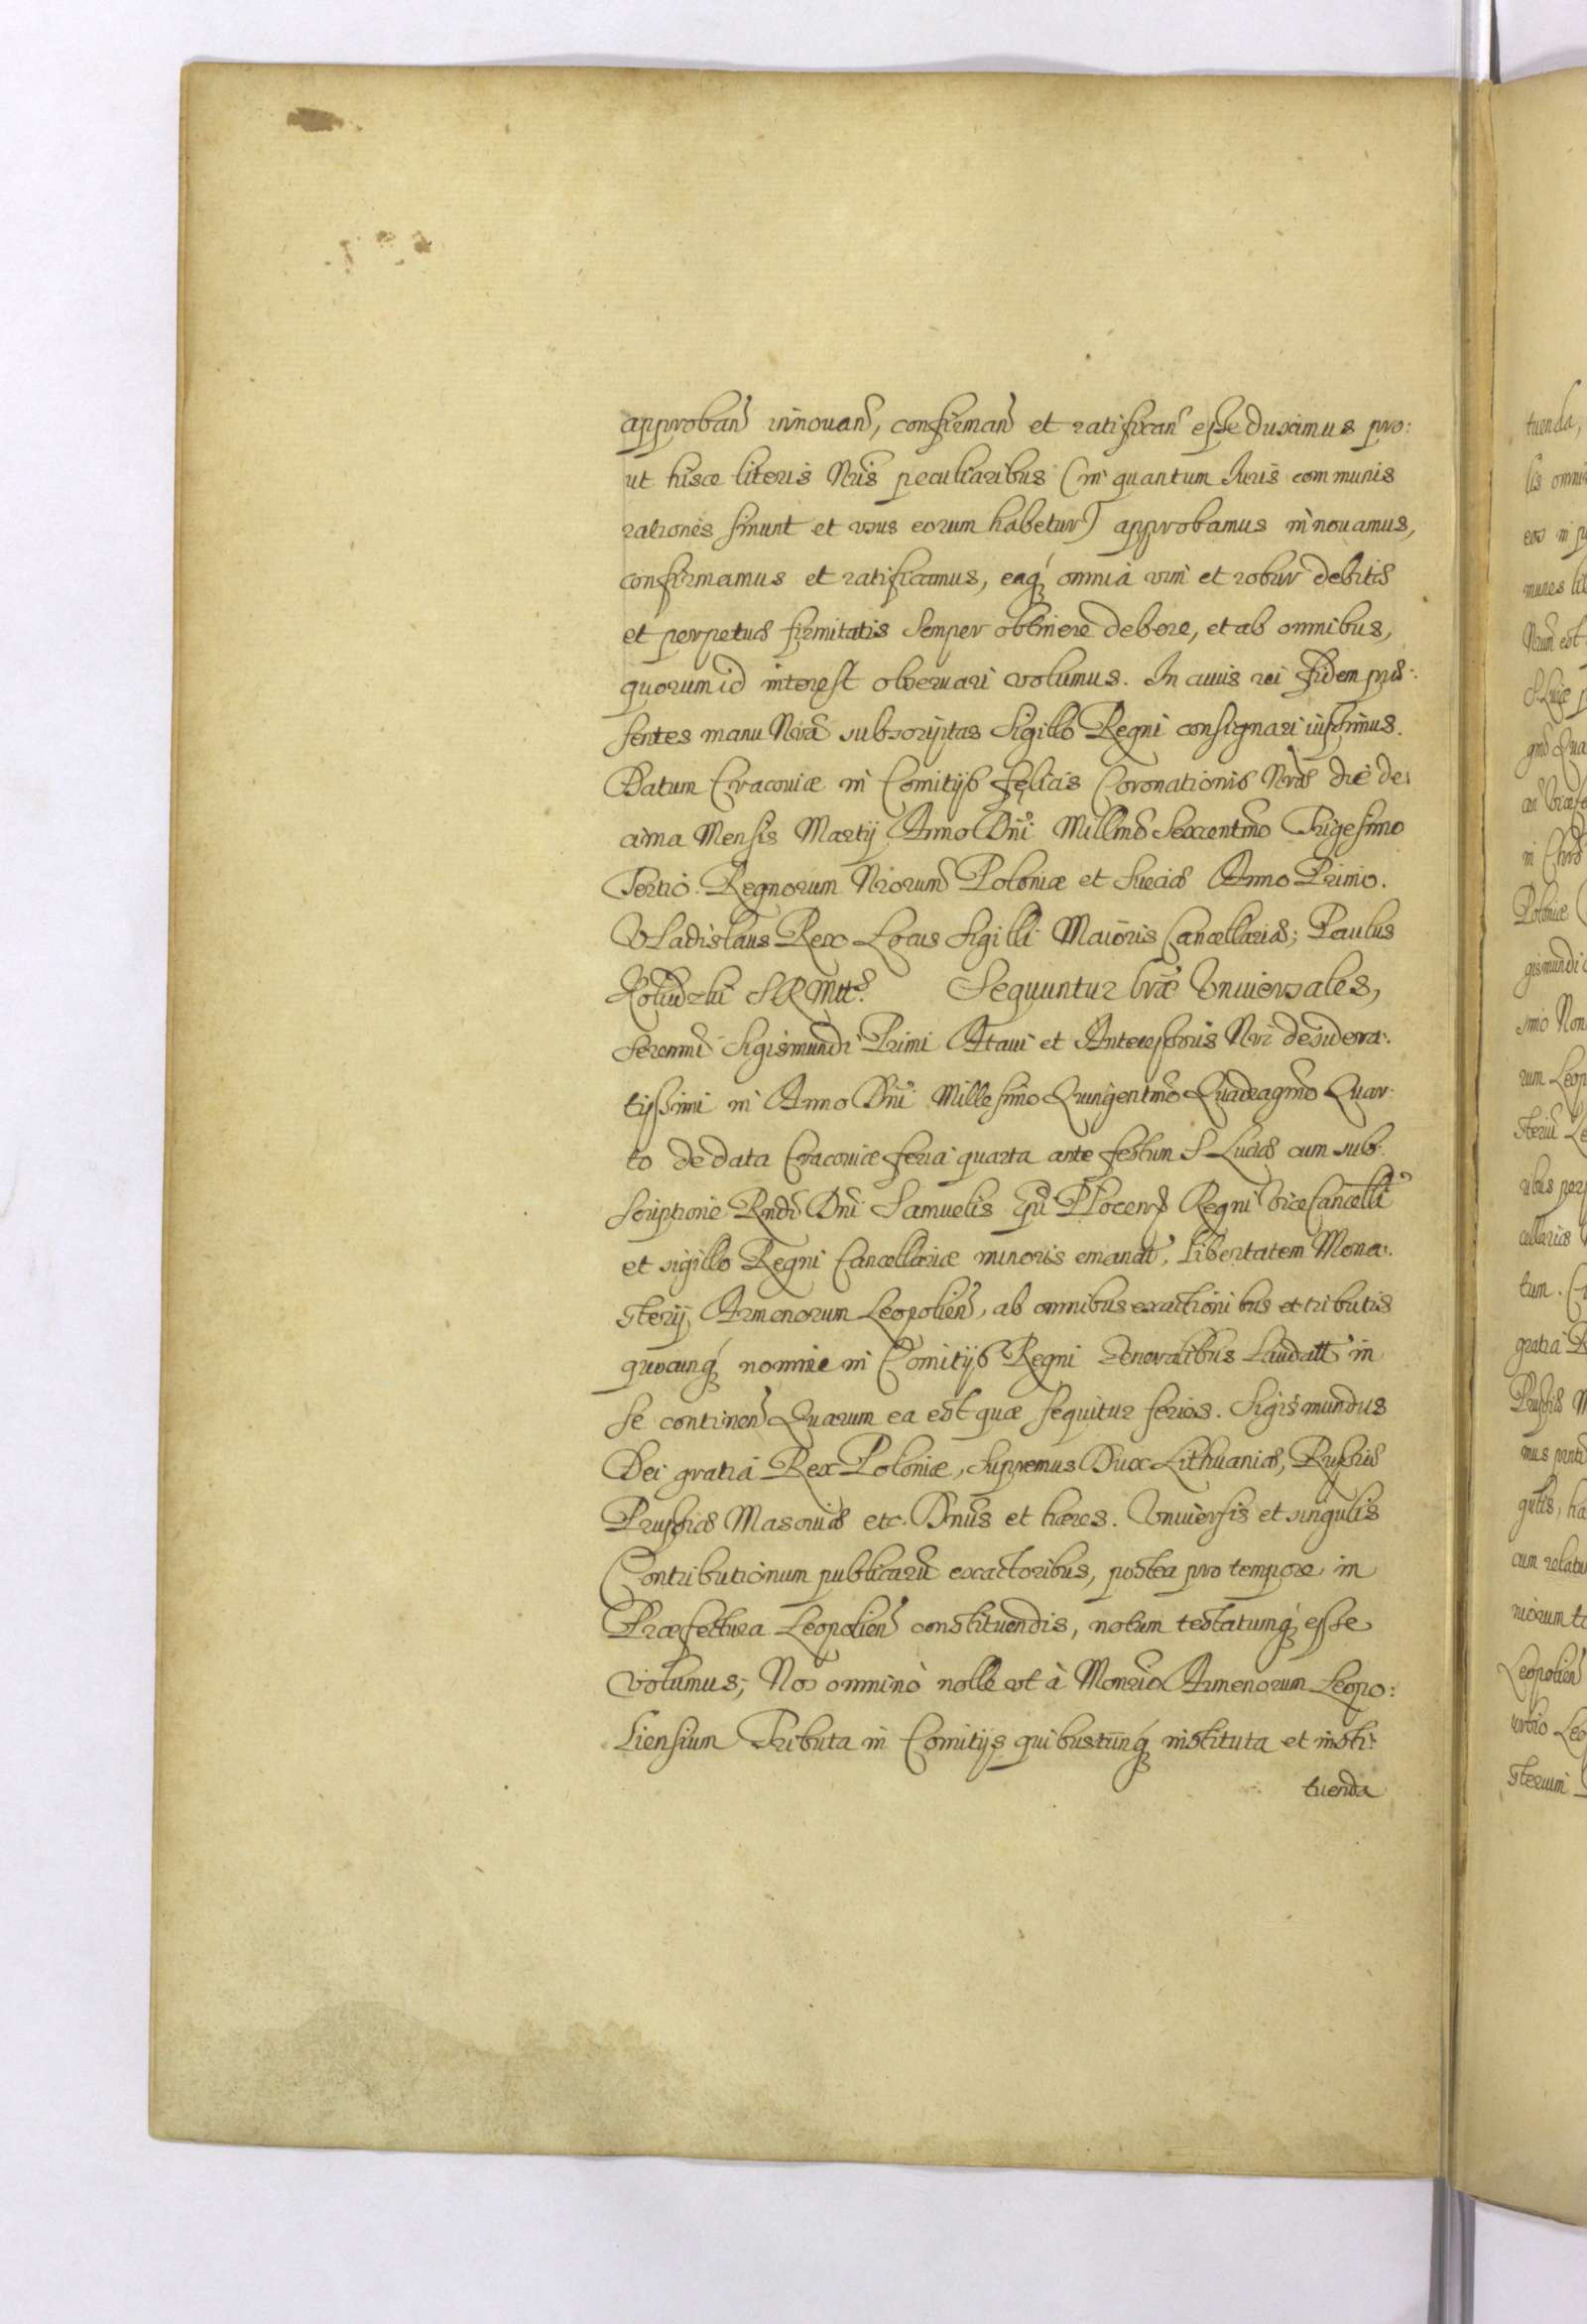 approban̄ innouan̄, confirman̄ et ratifican̄ esse duximus pro:
ut hisce literis Nr̄is peculiaribus (in quantum Iuris communis
rationes sinunt et usus eorum habetur) approbamus innouamus,
confirmamus et ratificamus, eaq́ȝ omnia vim et robur debitæ
et perpetuæ firmitatis semper obtinere debere, et ab omnibus,
quorum id interest observari volumus. In cuius rei fidem præ:
sentes manu Nr̄a subscriptas Sigillo Regni consignari iussimus.
Datum Cracouiæ in Comitijs felicis Coronationis Nr̄æ die de:
cima Mensis Martij Anno Dn̄i Millm̄o Sexcentm̄o Trigesimo
Tertio. Regnorum Nr̄orum Poloniæ et Sueciæ Anno Primo.
Vladislaus Rex Locus Sigilli Maioris Cancellariæ; Paulus
S R Mtt̄s. Sequuntur lr̄æ Vniversales,
Serenmi Sigismundi Primi Ataui et Antecessoris Nr̄i desidera:
tissimi in Anno Dn̄i Millesimo Quingentm̄o Quadragm̄o Quar:
to de data Cracouiæ feria quarta ante festum S Luciæ cum sub:
scriptione Rndi Dn̄i Samuelis Ep̄i Plocen̄s Regni Vice Cancell̄
et sigillo Regni Cancellariæ minoris emanat̄, libertatem Mona:
sterij Armenorum Leopolien̄, ab omnibus exactionibus et tributis
quocunq́ȝ nomine in Comitijs Regni Generalibus Laudatt̄ in
se continen̄ Quarum ea est quæ sequitur series. Sigismundus
Dei gratiâ Rex Poloniæ, Supremus Dux Lithuaniæ, Russiæ
Prussiæ Masouiæ etc. Dn̄us et hæres. Vniuersis et singulis
Contributionum publicarū exactoribus, postea pro tempore in
Præfectura Leopolien̄ constituendis, notum testatumq́ȝ esse
volumus; Nos omninò nolle vt à Mon̄rio Armenorum Leopo:
liensium Tributa in Comitijs quibuscunq́ȝ instituta et insti:
tuenda